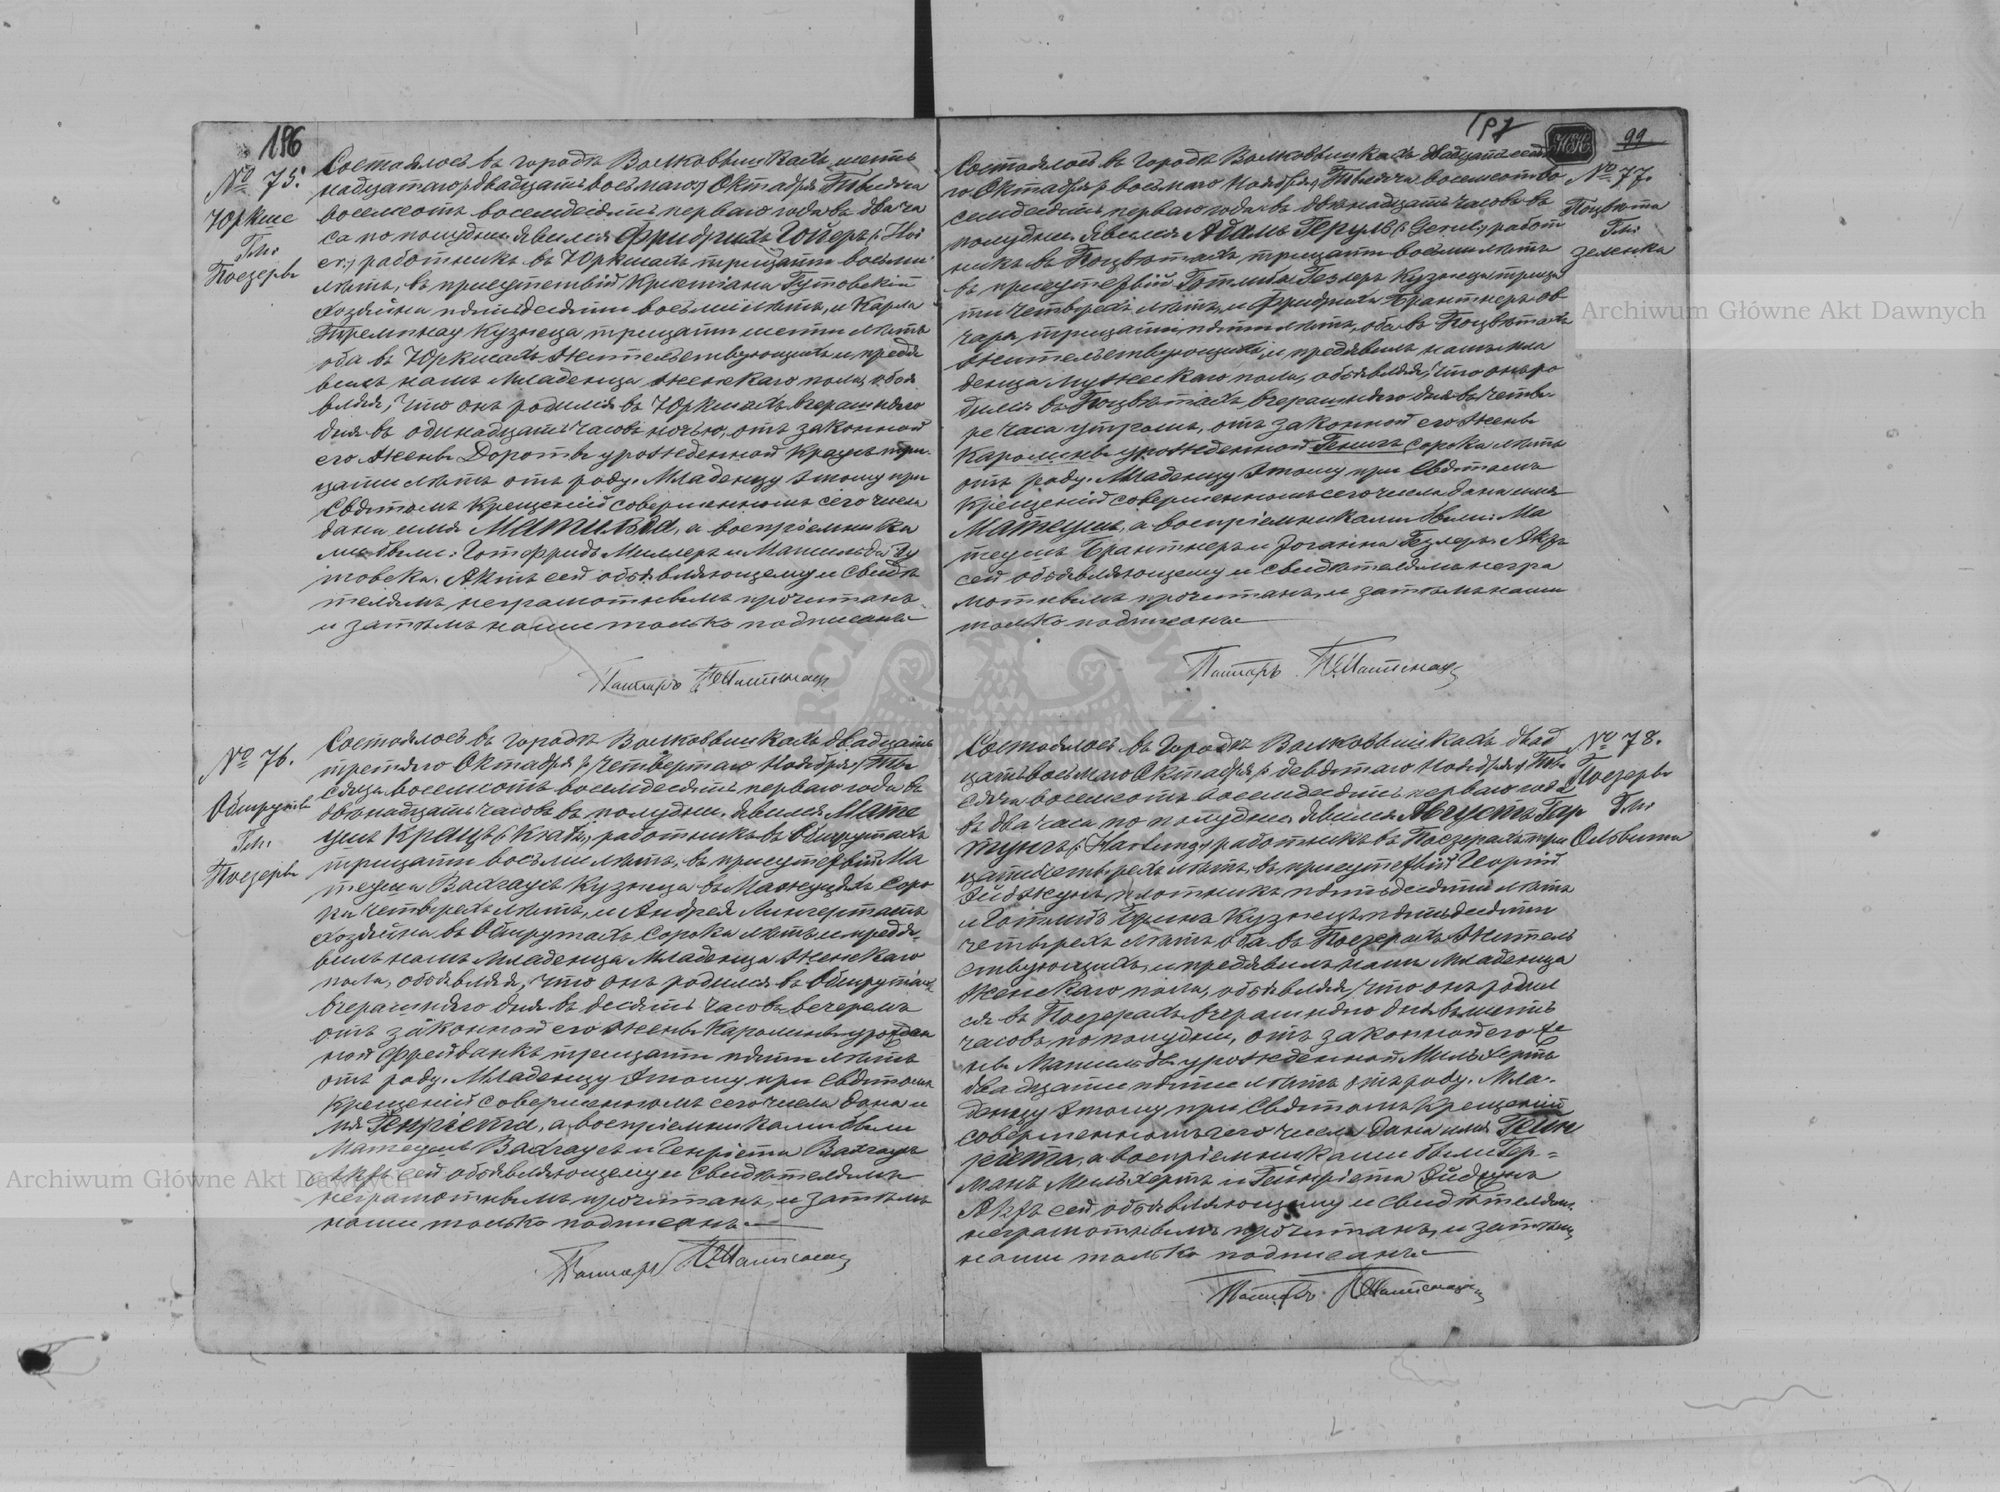 196
№ 75.
Юркше
Гм:
Поезеры
Состоялось въ городѣ Волковышкахъ шест
надцатаго /: двадцать восьмаго :/ Октября Тысяча
восемсотъ восемдесятъ перваго года въ два ча
са по полудни. Явился Фридрихъ Гойеръ /: Hoi
er :/ работникъ въ Юркшахъ тридцати восьми
лѣтъ, въ присутствіи Христіана Гутовскій
хозяина пятьдесяти восьми лѣтъ, и Карла
кузнеца тридцати шести лѣтъ
оба въ Юркшахъ жительствующихъ и предъя
вилъ намъ младенца женскаго пола, объя
вляя, что онъ родился въ Юркшахъ вчерашняго
дня въ одинадцать часовъ ночью, отъ законной
его жены Дороты урожденной Краузъ три
цати лѣтъ отъ роду. Младенцу этому при
Святомъ Крещеніи совершенномъ сего числа
дано имя Матильда, а воспріемника
ми были: Готфридъ Миллеръ и Матильда Гу
товска. Актъ сей объявляющему и свидѣ
телямъ неграмотнымъ прочитанъ
и затѣмъ нами только подписанъ
Пасторъ
№ 76.
Обшруты
Гм:
Поезеры
Состоялось въ городѣ Волковышкахъ двадцать
третьяго Октября /: четвертаго Ноября :/ Ты
сяча восемсотъ восемдесятъ перваго года въ
двѣнадцать часовъ въ полудни. Явился Мате
ушъ Крацъ /: Kratz :/ работникъ въ Обшрутахъ
тридцати восьми лѣтъ, въ присутствіи Ма
теуша Вахгаусъ кузнеца въ сoро
ка четырехъ лѣтъ, и Андрея Лингертатъ
хозяина въ Обшрутахъ сорока лѣтъ и предъя
вилъ намъ младенца младенца женскаго
пола, объявляя, что онъ родился въ Обшрутахъ
вчерашняго дня въ десять часовъ вечеромъ
отъ законной его жены Каролины урожден
ной Фрейванкъ тридцати пяти лѣтъ
отъ роду. Младенцу этому при Святомъ
Крещеніи совершенномъ сего числа дано и
мя Генріета, а воспріемниками были
Матеушъ Вахгаусъ и Генріета Вахгаусъ
Актъ сей объявляющему и свидѣтелямъ
неграмотнымъ прочитанъ, и затѣмъ
нами только подписанъ
Пасторъ
197
НК
99
№ 77.
Поцвѣта
Гм:
Зеленка
Состоялось въ городѣ Волковышкахъ двадцать седьма
го Октября /: восьмаго Ноября :/ Тысяча восемсотъ во
семдесятъ перваго года въ двѣнадцать часовъ въ
полудни. Явился Адамъ Геруль /: Gerul :/ работ
никъ въ Поцвѣтахъ, тридцати восьми лѣтъ
въ присутствіи Готлиба Гезлеръ кузнеца тридца
ти четырехъ лѣтъ, и Фридриха Брантнеръ ов
чара тридцати пяти лѣтъ, оба въ Поцвѣтахъ
жительствующихъ, и предъявилъ намъ мла
денца мужескаго пола, объявляя, что онъ ро
дился въ Поцвѣтахъ вчерашняго дня въ четы
ре часа утромъ, отъ законной его жены
Каролины урожденной Генигъ сорока лѣтъ
отъ роду. Младенцу этому при Святомъ
Крещеніи совершенномъ сего числа дано имя
Матеушъ, а воспріемниками были: Ма
теушъ Брантнеръ и Іоганна Гезлеръ. Актъ
сей объявляющему и свидѣтелямъ негра
мотнымъ прочитанъ, и затѣмъ нами
только подписанъ
Пасторъ
№ 78.
Поезеры
Гм:
Ольвита
Состоялось въ городѣ Волковышкахъ двад
цать восьмаго Октября /: девятаго Ноября :/ Ты
сяча восемсотъ восемдесятъ перваго года
въ два часа по полудни. Явился Августъ Гар
тунгъ /: Hartung :/ работникъ въ Поезерахъ три
цати четырехъ лѣтъ, въ присутствіи Георгій
плотникъ пятьдесяти лѣтъ
и Готлибъ кузнецъ пятьдесяти
четырехъ лѣтъ оба въ Поезерахъ житель
ствующихъ, и предъявилъ намъ младенца
женскаго пола, объявляя, что онъ родил
ся въ Поезерахъ вчерашняго дня въ шесть
часовъ по полудни, отъ законной его же
ны Матильды урожденной Мильхертъ
двадцати пяти лѣтъ отъ роду. Мла-
денцу этому при Святомъ Крещеніи
совершенномъ сего числа дано имя Гейн
ріета, а воспріемниками были Гер-
манъ Мильхертъ и Гейнріета
Актъ сей объявляющему и свидѣтелямъ
неграмотнымъ прочитанъ, и затѣмъ
нами только подписанъ
Пасторъ
Archiwum Główne Akt Dawnych
Archiwum Główne Akt Dawnych